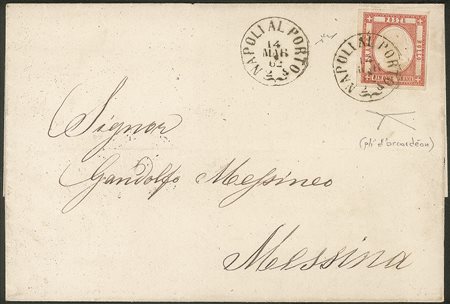 NAPOLI AL PORTO
14
MAR
62
POSTE
NAPOLI AL PORTO
(pli d'accordéon)
Signor
Gandolfo Messineo
Messina